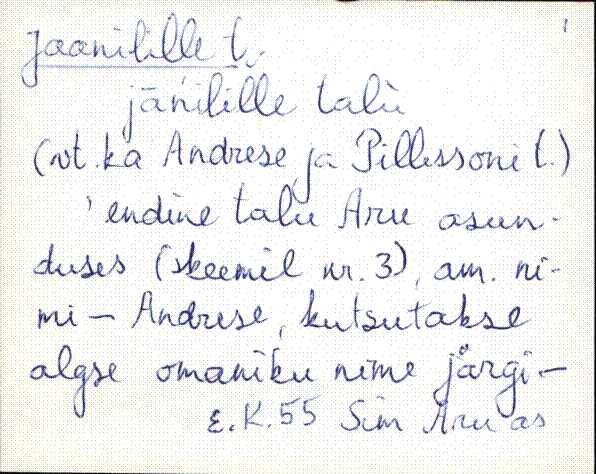 1
Jaanilille t.
jäńilille talù
(vt. ka Andrese ja Pillessoni t.)
'endine talu Aru asun-
duses (skeemil nr. 3), am. ni-
mi – Andrese, kutsutakse
algse omaniku nime järgi –
E.K. 55 Sim Aru as